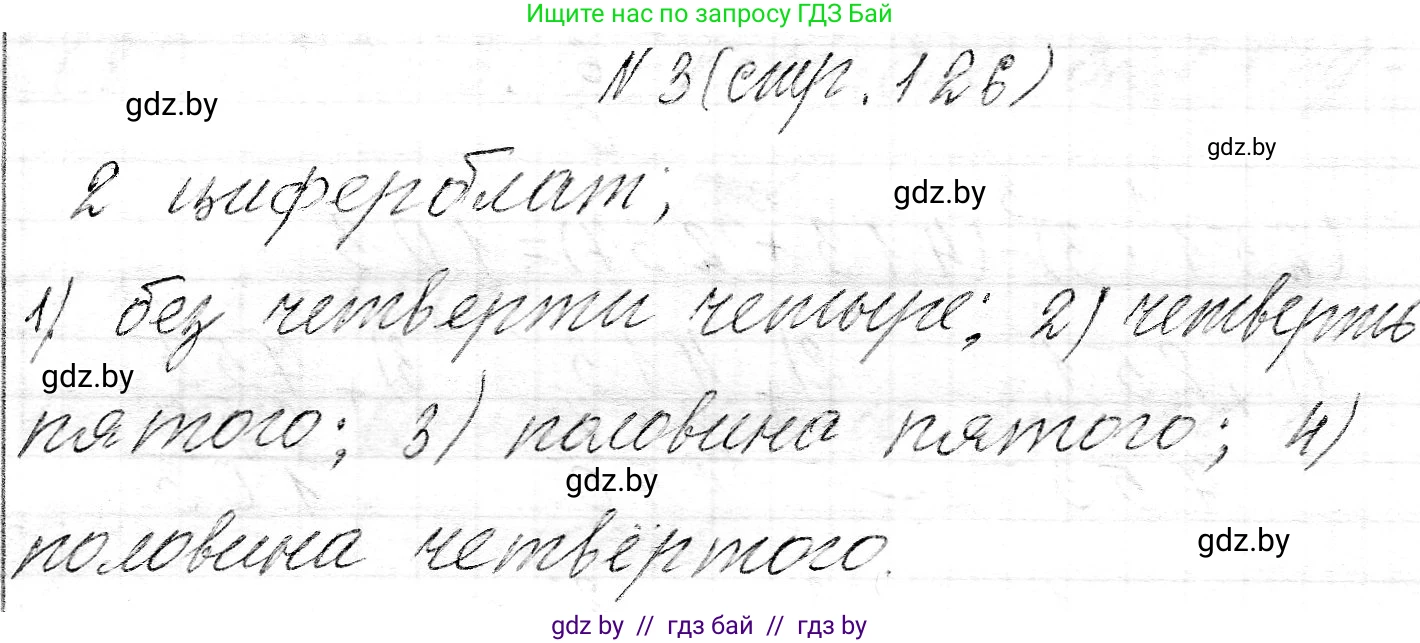 Ищите нас по запросу ГДЗ Бай
N 3 (стр. 126)
gdz.by
gdz.by
2 циферблат;
gdz.by
1) без четверти четыре; 2) четверть
gdz.by
пятого; 3) половина пятого; 4)
gdz.by
половина четвёртого.
gdz.by
gdz by // гдз бай // гдз by